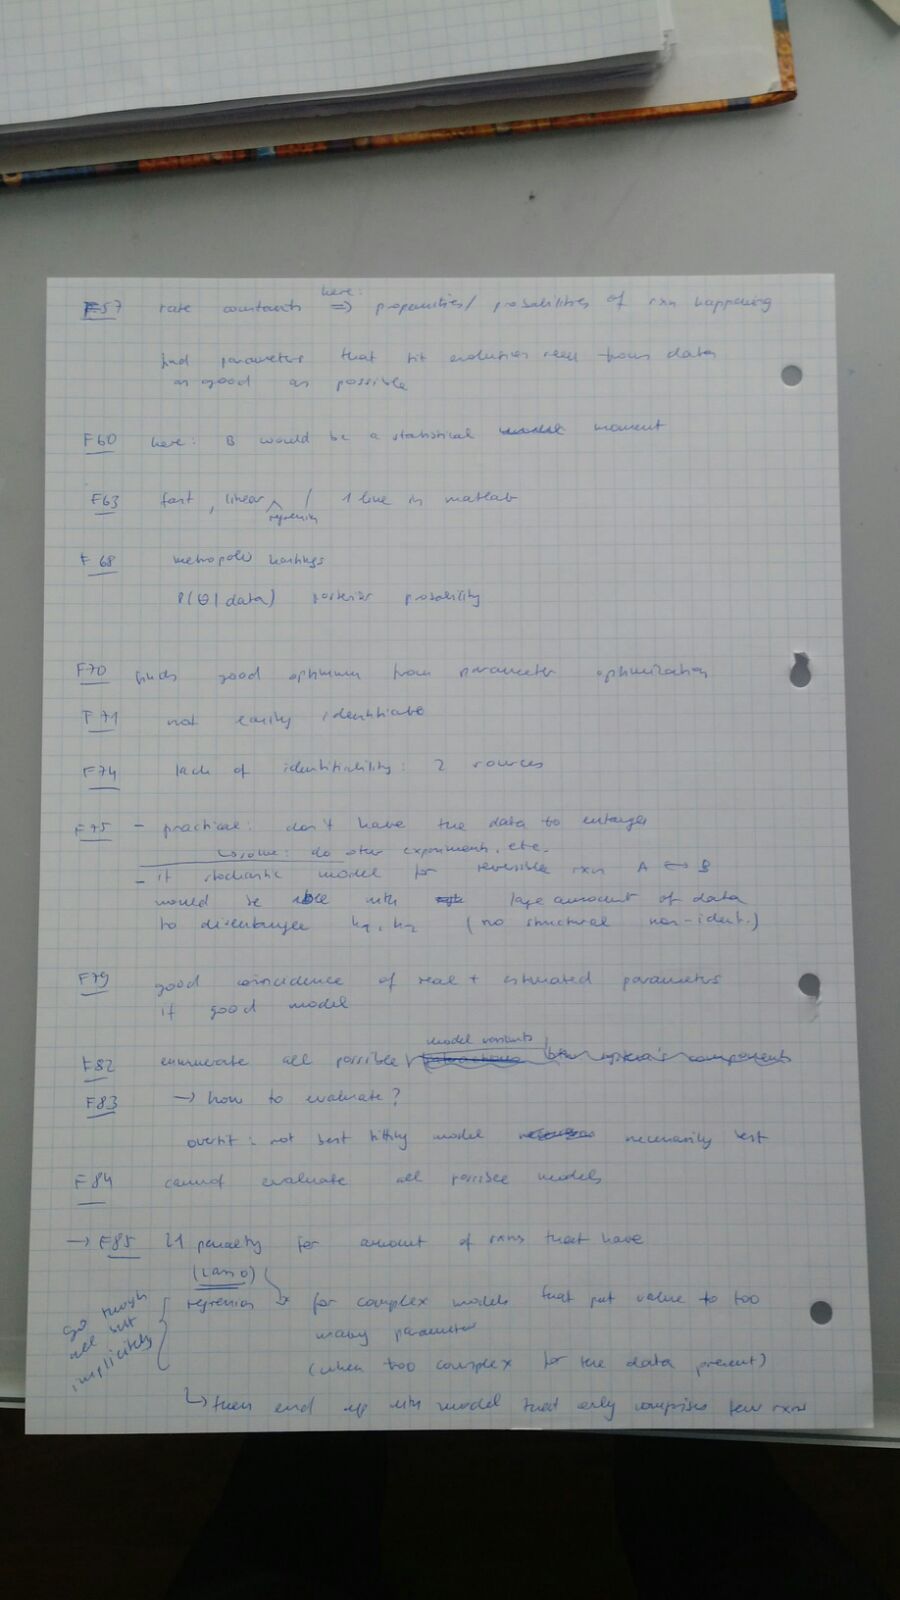 here:
F57 rate constants => propensities/ probabilities of rxn happening
find parameters that fit evolution seen from data
as good as possible
F60 here: B would be a statistical moment
F63 fast, linear / 1 line in matlab
regression
F68 metropolis hastings
P(θ|data) posterior probability
F70 finds good optimum from parameter optimization
F71 not easily identifiable
F74 lack of identifiability: 2 sources
F75 - practical: don't have the data to entangle
↳ solve: do other experiments, etc.
- if stochastic model for reversible rxn A ↔ B
would be able with large amount of data
to disentangle k1, k2 (no structural non-ident.)
F79 good coincidence of real + estimated parameters
if good model
model variants
F82 enumerate all possible
F83 → how to evaluate?
overfit: not best fitting model necessarily best
F84 cannot evaluate all possible models
→ F85 L1 penalty for amount of rxns that have
(Lasso)
regression for complex models that put value to too
many parameter
(when too complex for the data present)
go through
all but
implicitely
↳ then end up with model that only comprises few rxns